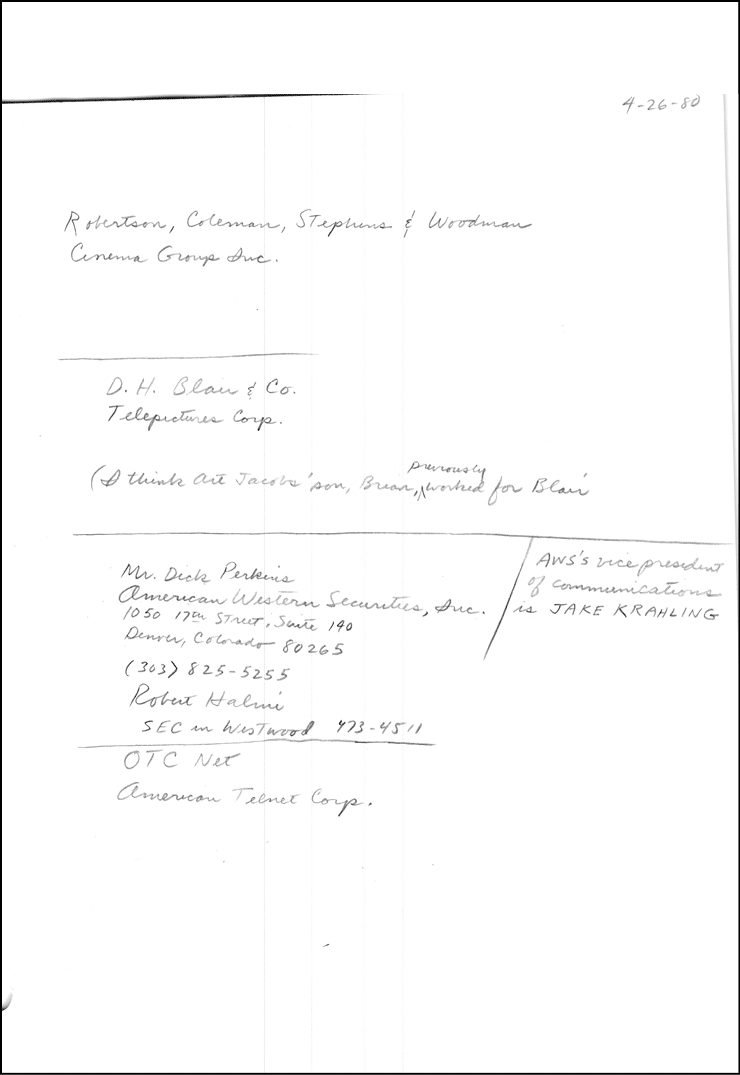 4-26-80
Robertson, Coleman, Stephens & Woodman
Cinema Group Inc.
D. H. Blair & Co.
Telepictures Corp.
previously
(I think Art Jacobs'son, Brian, worked for Blair
Mr. Dick Perkins
American Western Securities, Inc.
1050 17th Street, Suite 140
Denver, Colorado 80265
(303) 825-5255
Robert Halmi
SEC in Westwood 473-4511
AWS's vice president
of communications
is JAKE KRAHLING
OTC Net
American Telnet Corp.